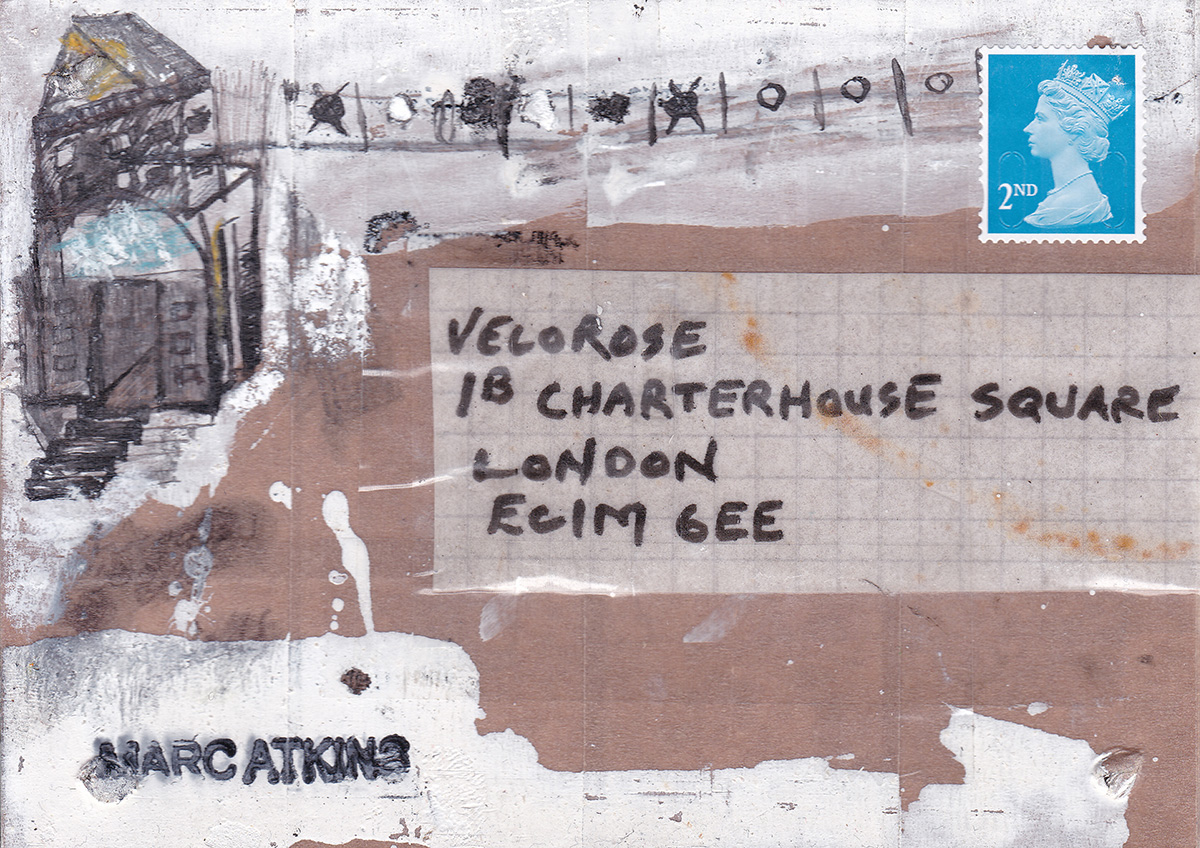 2ND
VELOROSE
1B CHARTERHOUSE SQUARE
LONDON
EC1M 6EE
MARC ATKINS